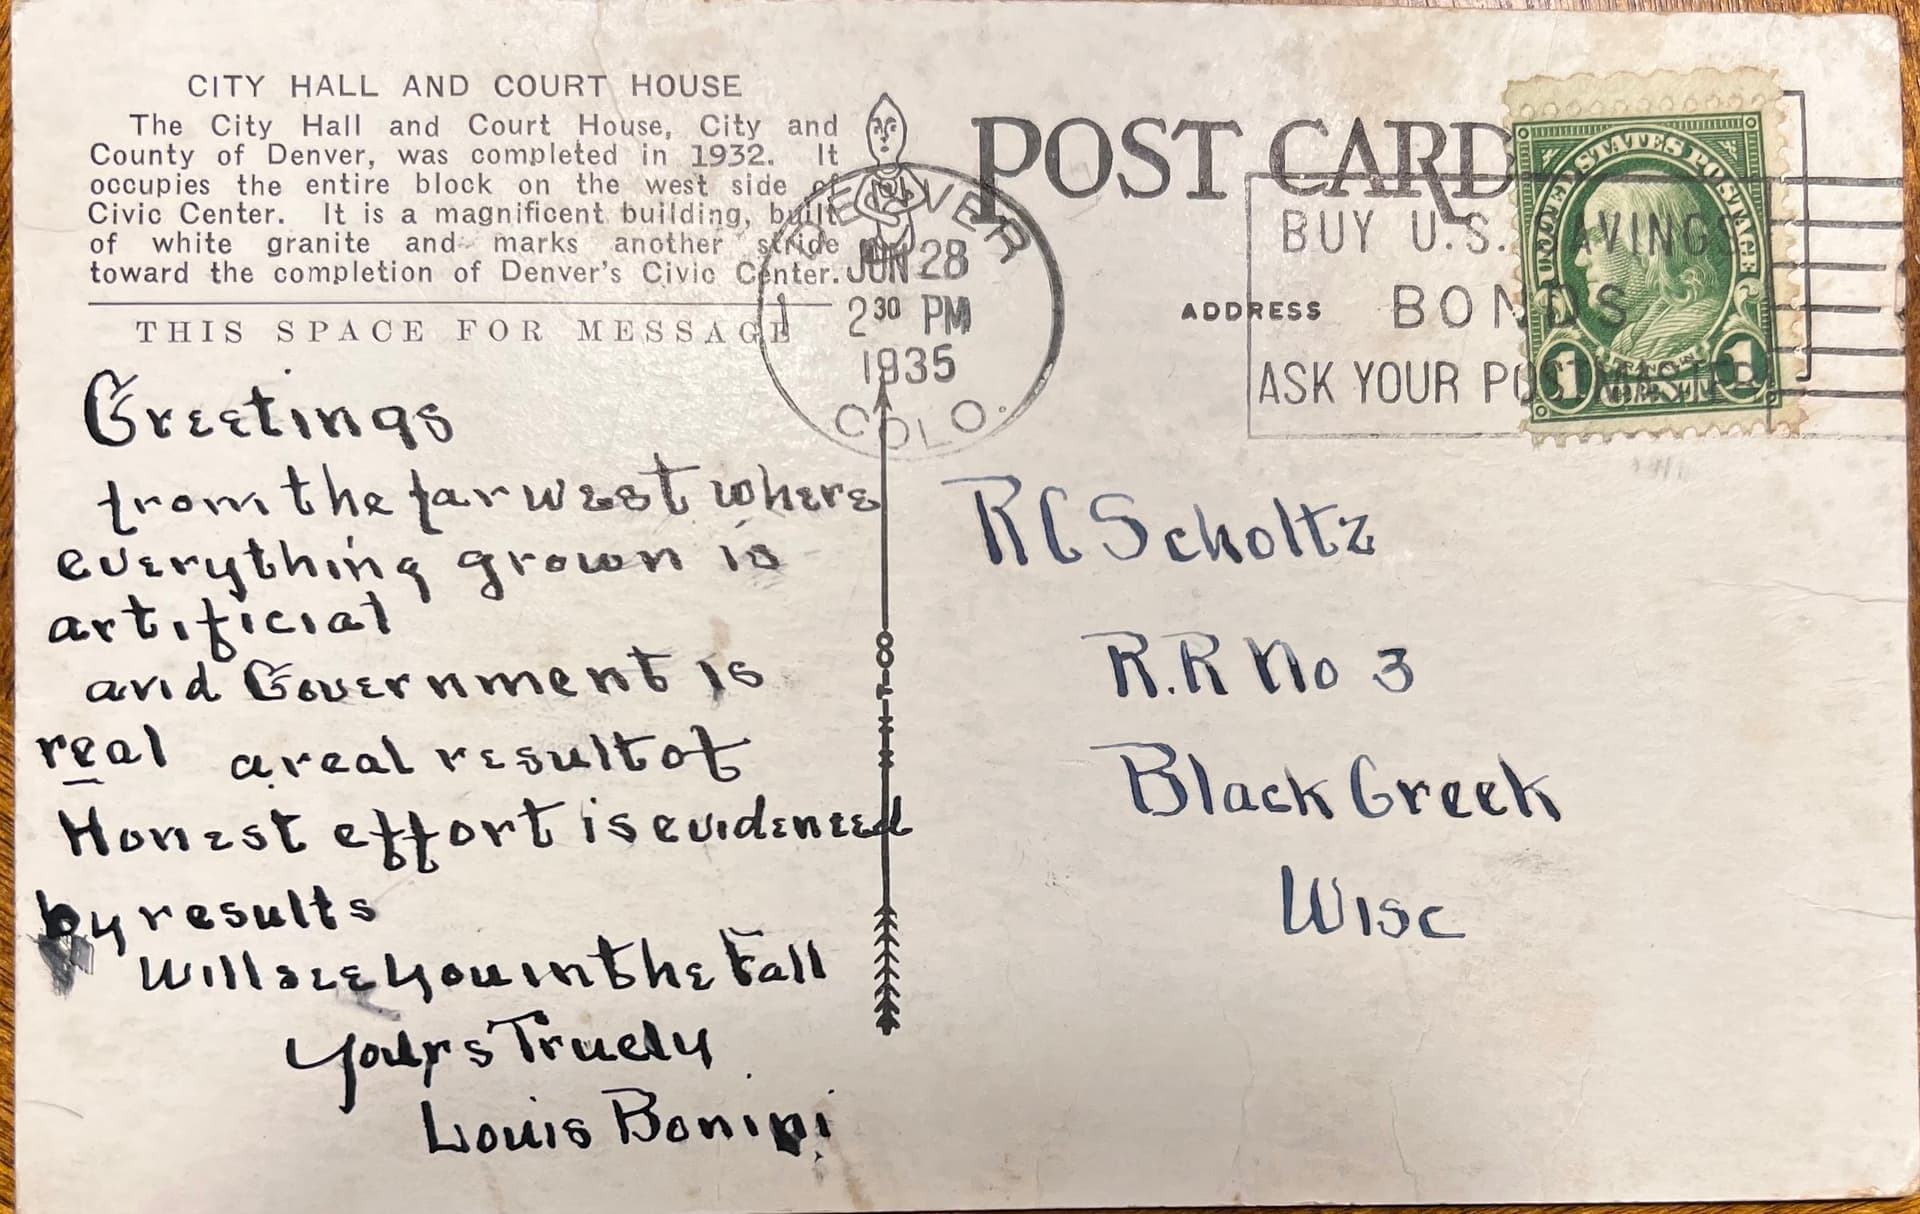 CITY HALL AND COURT HOUSE
The City Hall and Court House, City and
County of Denver, was completed in 1932. It
occupies the entire block on the west side of
Civic Center. It is a magnificent building, built
of white granite and marks another stride
toward the completion of Denver's Civic Center.
THIS SPACE FOR MESSAGE
Greetings
from the far west where
everything grown is
artificial
and Government is
real a real result of
Honest effort is evidenced
by results
Will see you in the Fall
Yours Truely
Louis Bonini
DENVER
JUN 28
2 30 PM
1935
COLO.
POST CARD
ADDRESS
BUY U.S. SAVINGS
BONDS
ASK YOUR POSTMASTER
UNITED STATES POSTAGE
1 1
R C Scholtz
R.R No 3
Black Creek
Wisc